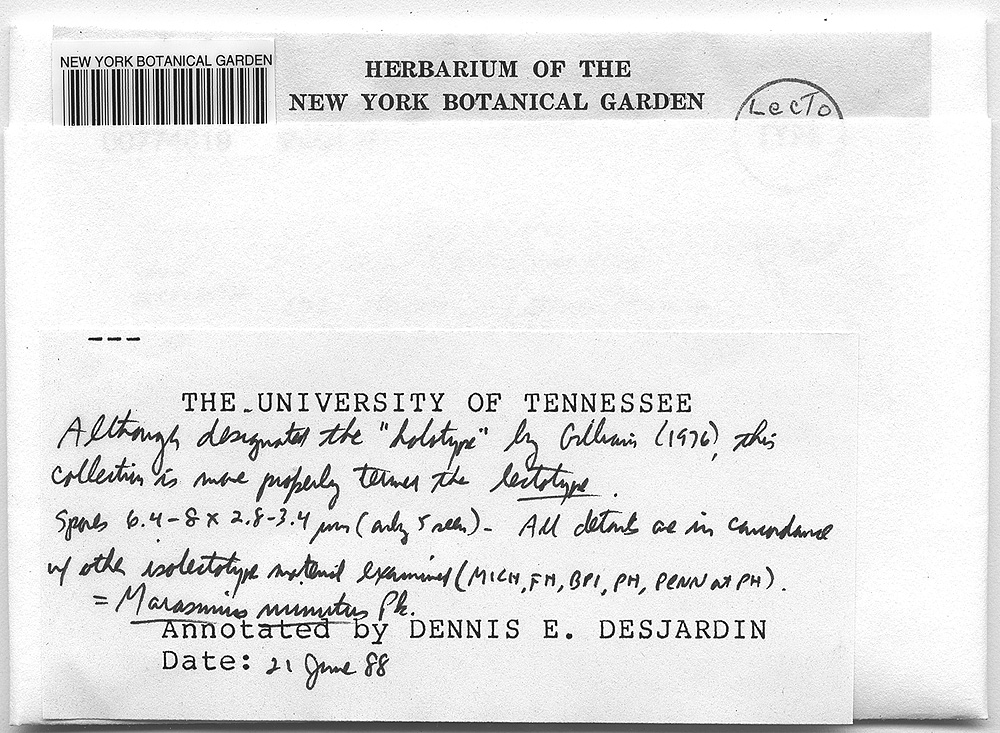 NEW YORK BOTANICAL GARDEN
HERBARIUM OF THE
NEW YORK BOTANICAL GARDEN
LecTo
TYPE
---
THE UNIVERSITY OF TENNESSEE
Although designated the "holotype" by Gilliam (1976), this
collection is more properly termed the lectotype.
Spores 6.4-8 x 2.8-3.4 µm (only 5 seen). All details are in concordance
w/ other isolectotype material examined (MICH, FH, BPI, PH, PENN at PH).
= Marasmius minutus Pk.
Annotated by DENNIS E. DESJARDIN
Date: 21 June 88